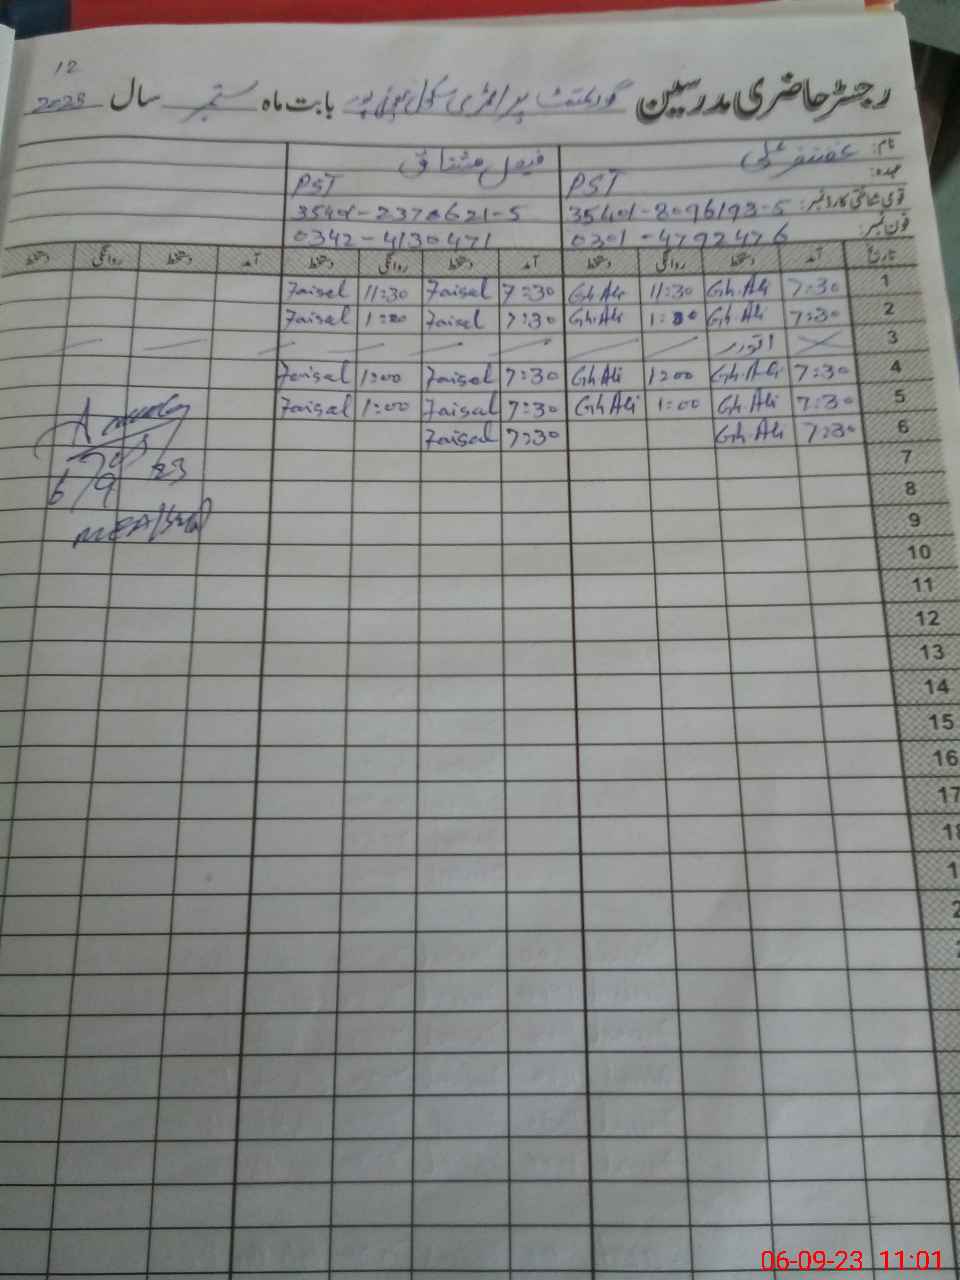 12
رجسٹر حاضری مدرسین گورنمنٹ پرائمری سکول پور بابت ماہ ستمبر سال 2023
نام: غضنفر علی فیصل مشتاق
عہدہ: PST PST
قومی شناختی کارڈ نمبر: 35401-8096193-5 35401-2378621-5
فون نمبر: 0301-4792476 0342-4130471
تاریخ آمد دستخط روانگی دستخط آمد دستخط روانگی دستخط آمد دستخط روانگی دستخط
1 7:30 Gh.Ali 11:30 Gh.Ali 7:30 Faisal 11:30 Faisal
2 7:30 Gh.Ali 1:00 Gh.Ali 7:30 Faisal 1:00 Faisal
3 اتوار
4 7:30 Gh.Ali 1:00 Gh.Ali 7:30 Faisal 1:00 Faisal
5 7:30 Gh.Ali 1:00 Gh.Ali 7:30 Faisal 1:00 Faisal
6 7:30 Gh.Ali 7:30 Faisal
7
8
9
10
11
12
13
14
15
16
17
6/9/23
MEA
06-09-23 11:01